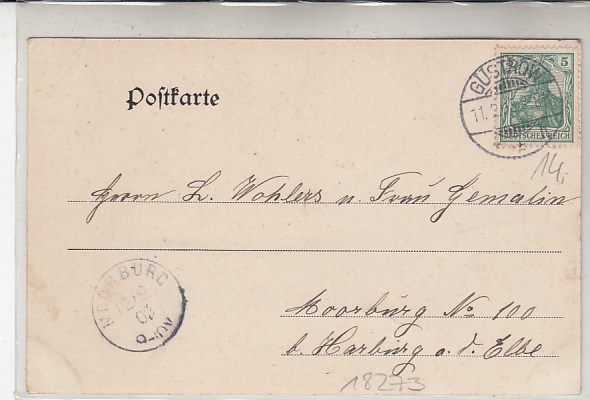 Postkarte
GÜSTROW
11.
5
DEUTSCHES REICH
14,
Herrn L. Wohlers u. Frau Gemalin
MOORBURG
Moorburg No 100
b. Harburg a. d. Elbe
18273